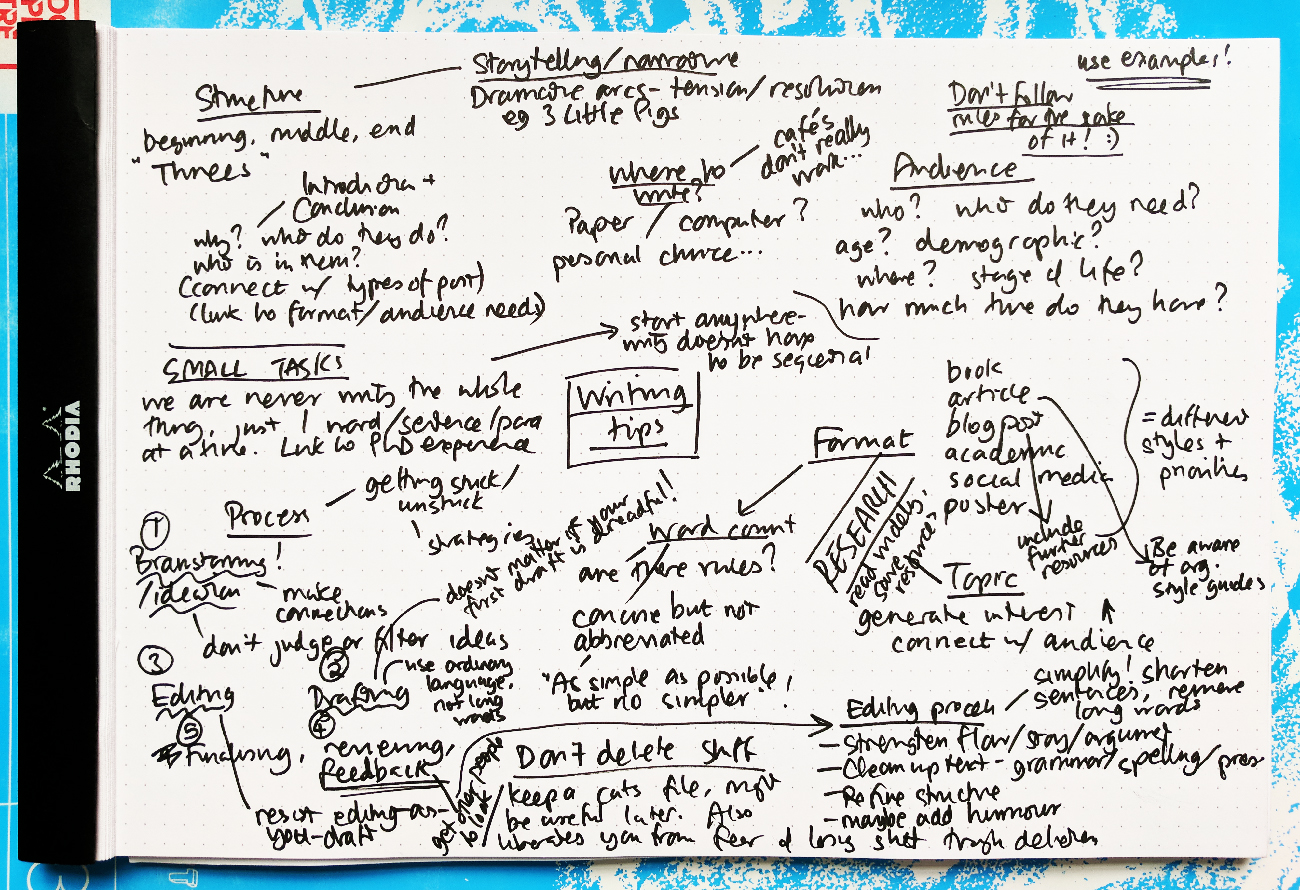 RHODIA
Structure
beginning, middle, end
"Threes"
Introduction +
Conclusion
why? who do they do?
who is in them?
(connect w/ types of post)
(link to format/audience needs)
Storytelling/narrative
Dramatic arcs - tension/resolution
eg 3 Little Pigs
where to
write?
cafés
don't really
work...
Paper / computer?
personal choice...
use examples!
Don't follow
rules for the sake
of it! :)
Audience
who? who do they need?
age? demographic?
where? stage of life?
how much time do they have?
SMALL TASKS
we are never writing the whole
thing, just 1 word/sentence/para
at a time. Link to PhD experience
start anywhere -
writing doesn't have
to be sequential
Writing
tips
Format
book
article
blog post
academic
social media
poster
= different
styles +
priorities
include
further
resources
Be aware
of org.
style guides
RESEARCH
read models,
save
resources
word count
are there rules?
concise but not
abbreviated
"As simple as possible
but no simpler"!
Topic
generate interest
connect w/ audience
Process
getting stuck/
unstuck
strategies
1
Brainstorming!
/ideation
make
connections
don't judge or filter ideas
doesn't matter if your
first draft is dreadful!
3
Editing
2
Drafting
4
use ordinary
language,
not long
words
5
Finishing, reviewing,
feedback
resist editing-as-
you-draft
get other people
to look
Don't delete stuff
keep a cuts file, might
be useful later. Also
liberates you from fear of losing stuff through deletion
Editing process
simplify! shorten
sentences, remove
long words
- Strengthen flow/story/argument
- Clean up text - grammar/spelling/
- Refine structure
- maybe add humour